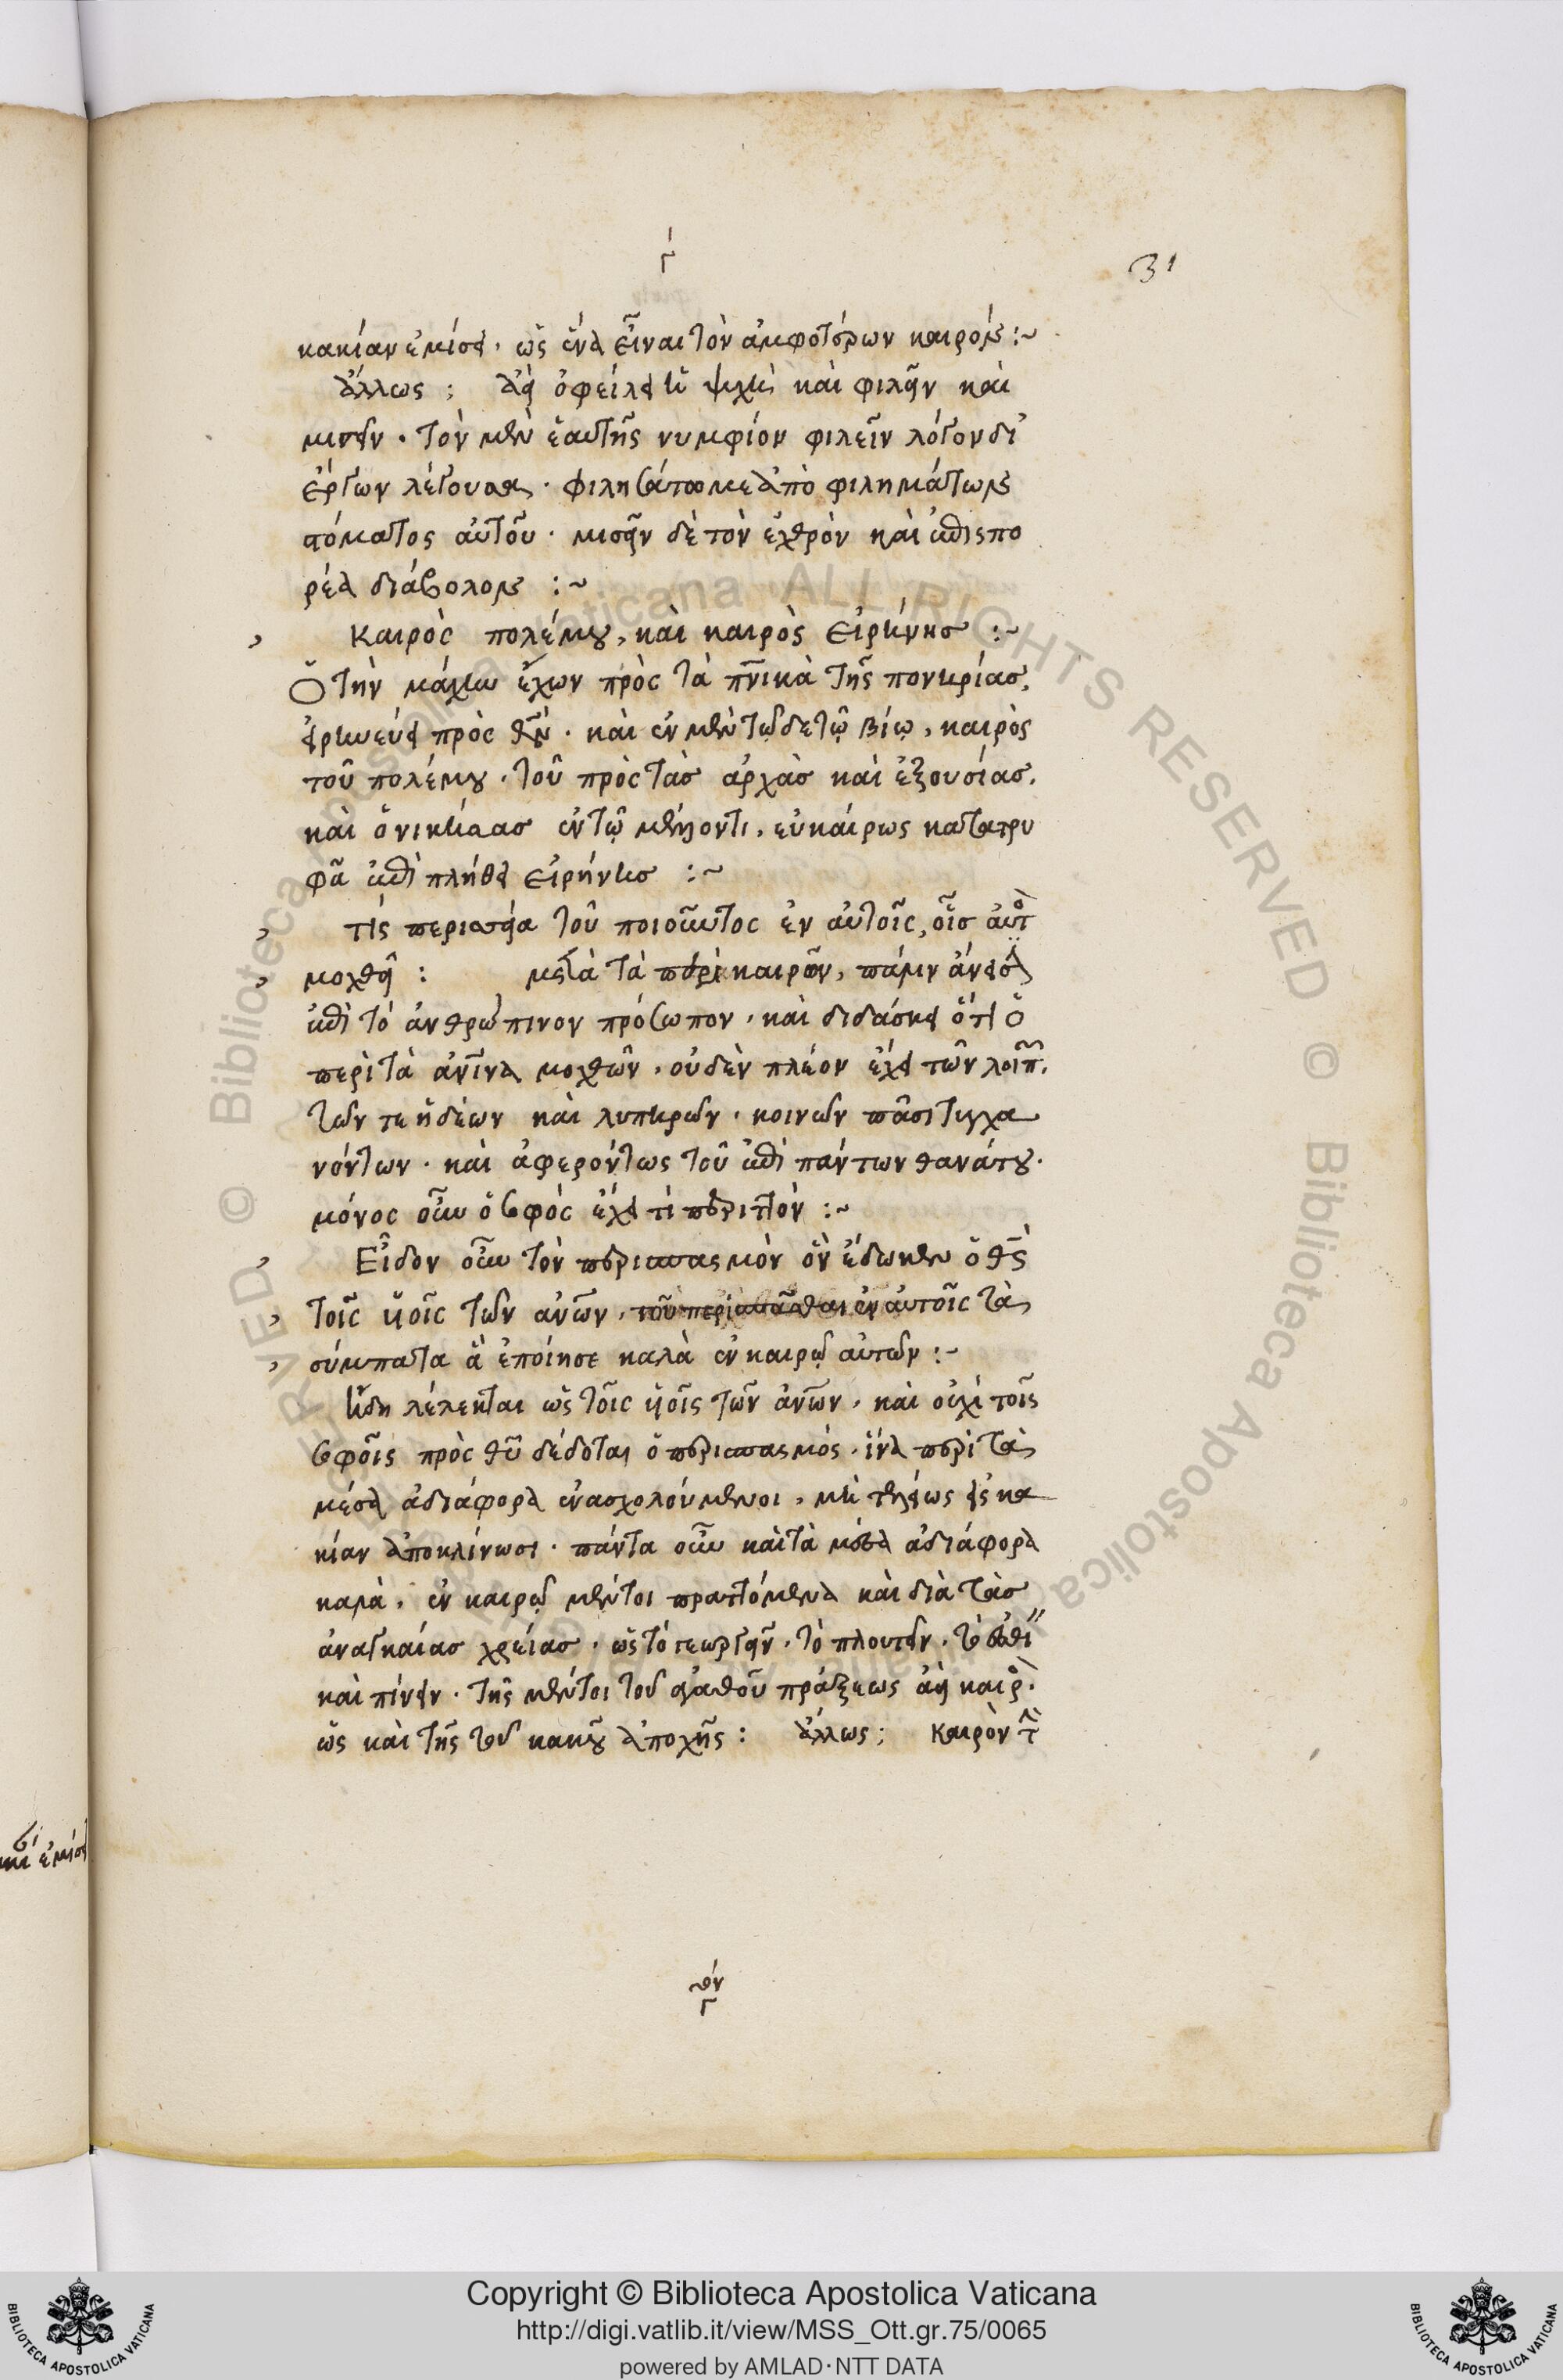 γ
31
κακίαν ἐμίσει. ὡς ἕνα εἶναι τὸν ἀμφοτέρων καιρόν :~
ἄλλως ; ἀεὶ ὀφείλει ἡ ψυχὴ καὶ φιλεῖν καὶ
μισεῖν . τὸν μὲν ἑαυτῆς νυμφίον φιλεῖν λόγον δι'
ἔργων λέγουσα . φιλησάτω με ἀπὸ φιλημάτων
στόματος αὐτοῦ . μισεῖν δὲ τὸν ἐχθρὸν καὶ ἐπισπο
ρέα διάβολον :~
καιρὸς πολέμου, καὶ καιρὸς εἰρήνης :~
Ὁ τὴν μάχην ἔχων πρὸς τὰ πνικὰ τῆς πονηρίας,
εἰρηνεύει πρὸς θν . καὶ ἐν μὲν τῷδε τῷ βίῳ, καιρὸς
τοῦ πολέμου . τοῦ πρὸς τὰς ἀρχὰς καὶ ἐξουσίας.
καὶ ὁ νικήσας ἐν τῷ μέλλοντι, εὐκαίρως κατατρυ
φᾶ ἐπὶ πλήθει εἰρήνης :~
τίς περισσεία τοῦ ποιοῦντος ἐν αὐτοῖς, οἷς αὐτὸ
μοχθεῖ : μετὰ τὰ περὶ καιρῶν, πάλιν ἄνεισ
ἐπὶ τὸ ἀνθρώπινον πρόσωπον, καὶ διδάσκει ὅτι ὁ
περὶ τὰ ἀνινα μοχθῶν, οὐδὲν πλέον ἔχει τῶν λοιπ.
τῶν τε ἡδέων καὶ λυπηρῶν, κοινῶν πᾶσι τυγχα
νόντων . καὶ διαφερόντως τοῦ ἐπὶ πάντων θανάτου.
μόνος οὖν ὁ σοφὸς ἔχει τι περιττόν :~
Εἶδον οὖν τὸν περισπασμὸν ὃν ἔδωκεν ὁ θς
τοῖς υἱοῖς τῶν ανων, τοῦ περισπᾶσθαι ἐν αὐτοῖς τὰ
σύμπαντα ἃ ἐποίησε καλὰ ἐν καιρῷ αὐτῶν :~
ἤδη λέλεκται ὡς τοῖς υἱοῖς τῶν ανων, καὶ οὐχὶ τοῖς
σοφοῖς πρὸς θυ δέδοται ὁ περισπασμός. ἵνα περὶ τὰ
μέσα ἀδιάφορα ἐνασχολούμενοι, μὴ τελείως εἰς κα
κίαν ἀποκλίνωσι . πάντα οὖν καὶ τὰ μέσα ἀδιάφορα
καλὰ, ἐν καιρῷ μέντοι πραττόμενα καὶ διὰ τὰς
ἀναγκαίας χρείας . ὡς τὸ γεωργεῖν, τὸ πλουτεῖν, τὸ ἐσθί
καὶ πίνειν . τῆς μέντοι τοῦ ἀγαθοῦ πράξεως ἀεὶ καιρὸ.
ὡς καὶ τῆς τοῦ κακοῦ ἀποχῆς : ἄλλως ; καιρὸν τ
Copyright © Biblioteca Apostolica Vaticana
http://digi.vatlib.it/view/MSS_Ott.gr.75/0065
powered by AMLAD·NTT DATA
BIBLIOTECA APOSTOLICA VATICANA
BIBLIOTECA APOSTOLICA VATICANA